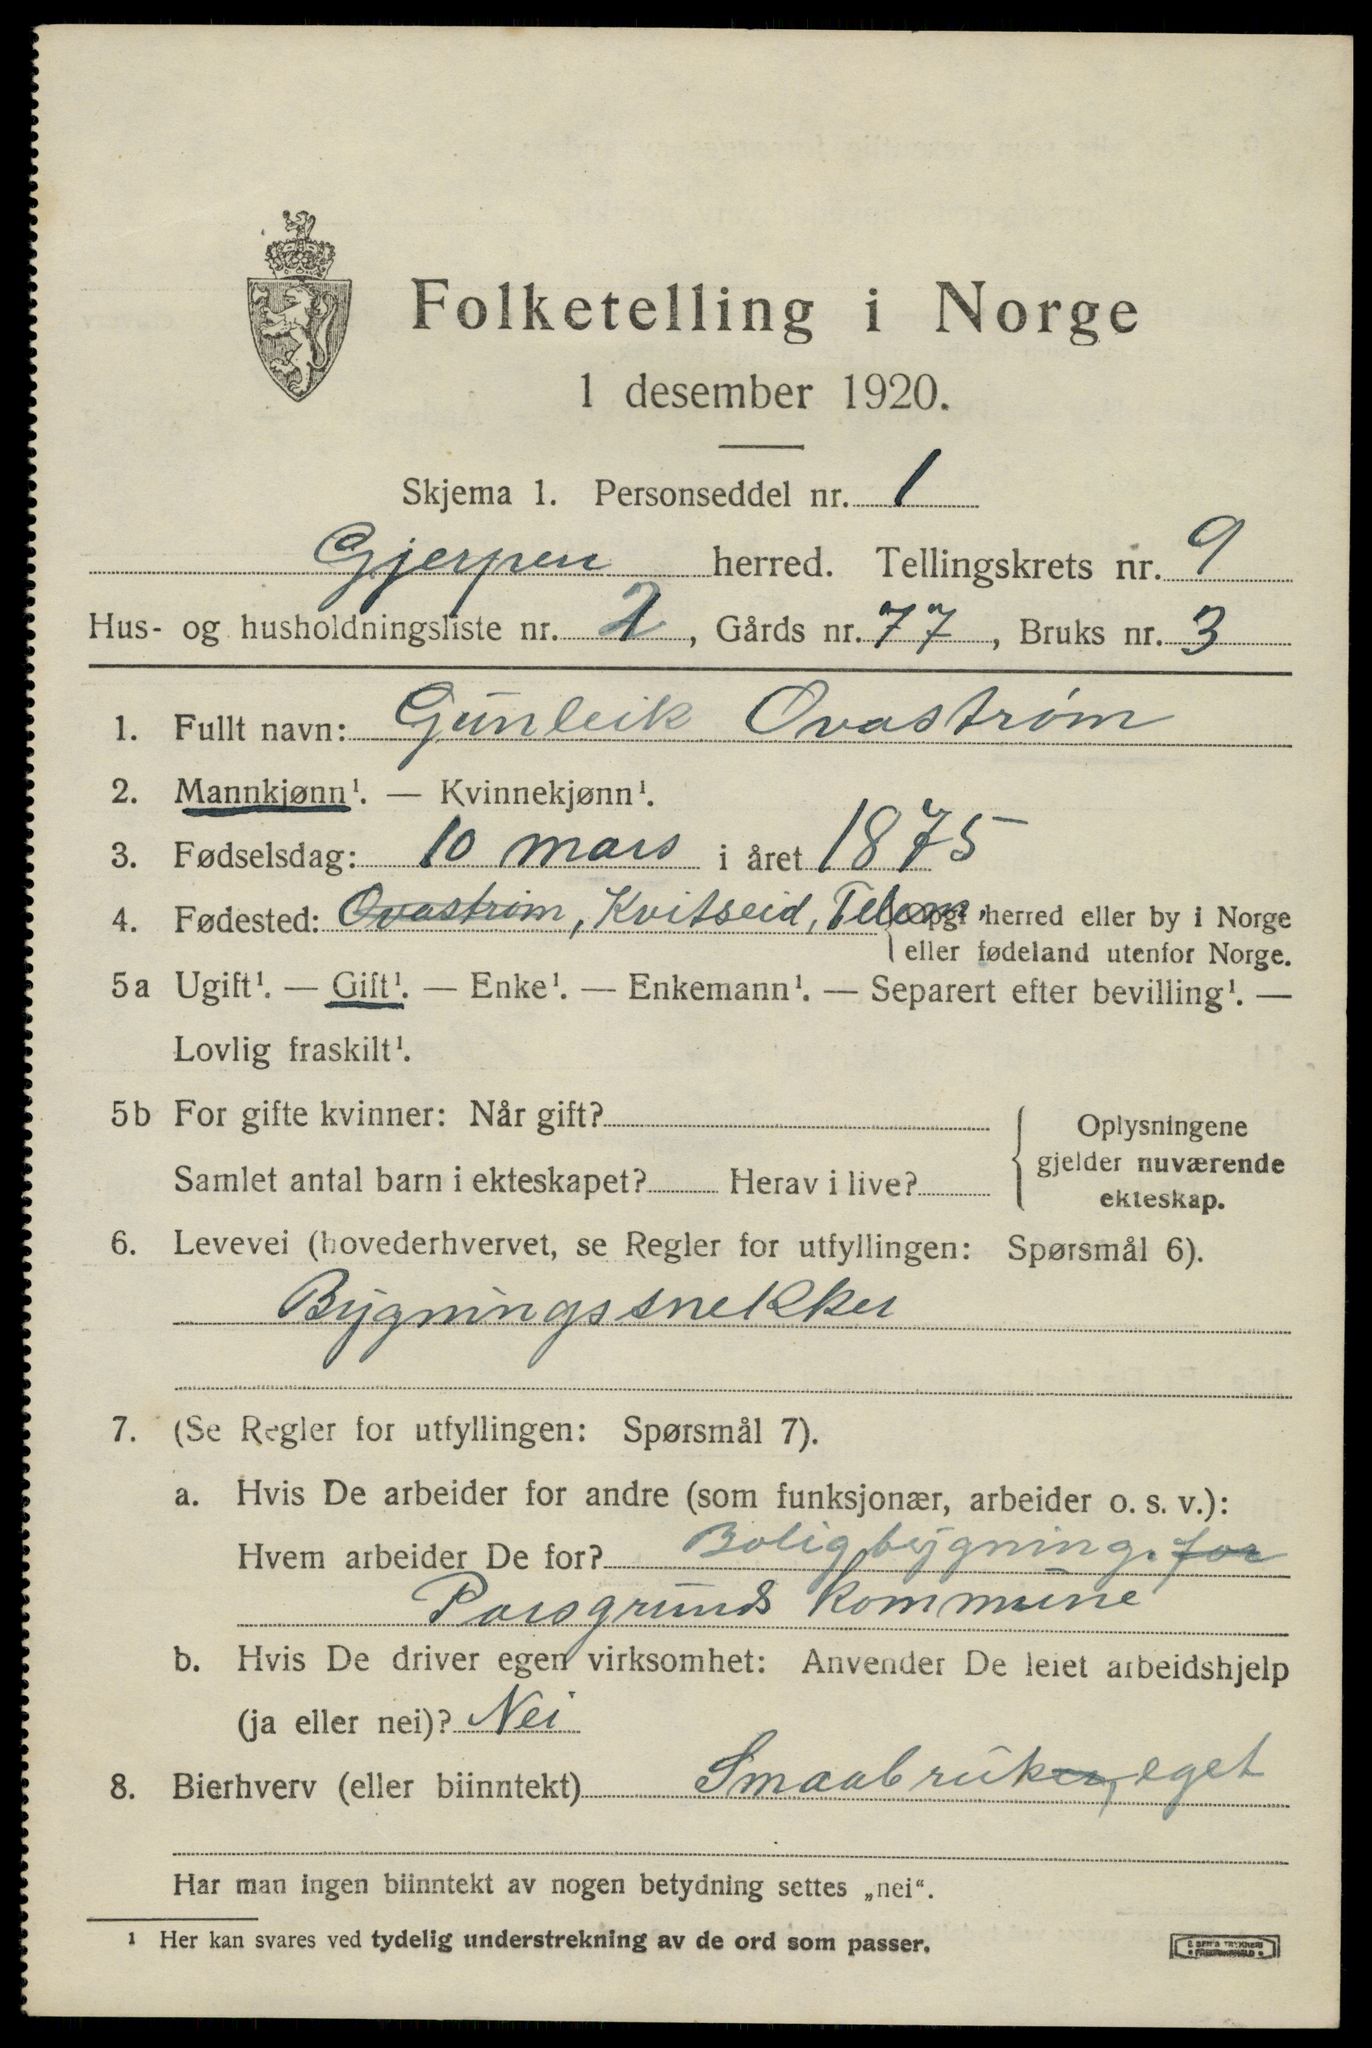 Folketelling i Norge
1 desember 1920.
Skjema 1. Personseddel nr. 1
Gjerpen herred. Tellingskrets nr. 9
Hus- og husholdningsliste nr. 2, Gårds nr. 77, Bruks nr. 3
1. Fullt navn: Gunleik Ovastrøm
2. Mannkjønn¹. — Kvinnekjønn¹.
3. Fødselsdag: 10 mars i året 1875
4. Fødested: Ovastrøm, Kvitseid, Telem. {Opgi herred eller by i Norge
eller fødeland utenfor Norge.
5a Ugift¹. — Gift¹. — Enke¹. — Enkemann¹. — Separert efter bevilling¹. —
Lovlig fraskilt¹.
5b For gifte kvinner: Når gift?
Samlet antal barn i ekteskapet? Herav i live?
Oplysningene
gjelder nuværende
ekteskap.
6. Levevei (hovederhvervet, se Regler for utfyllingen: Spørsmål 6).
Bygningssnekker
7. (Se Regler for utfyllingen: Spørsmål 7).
a. Hvis De arbeider for andre (som funksjonær, arbeider o. s. v.):
Hvem arbeider De for? Boligbygning. for
Porsgrunds kommune
b. Hvis De driver egen virksomhet: Anvender De leiet arbeidshjelp
(ja eller nei)? Nei
8. Bierhverv (eller biinntekt) Smaabruker, eget
Har man ingen biinntekt av nogen betydning settes „nei“.
¹ Her kan svares ved tydelig understrekning av de ord som passer.